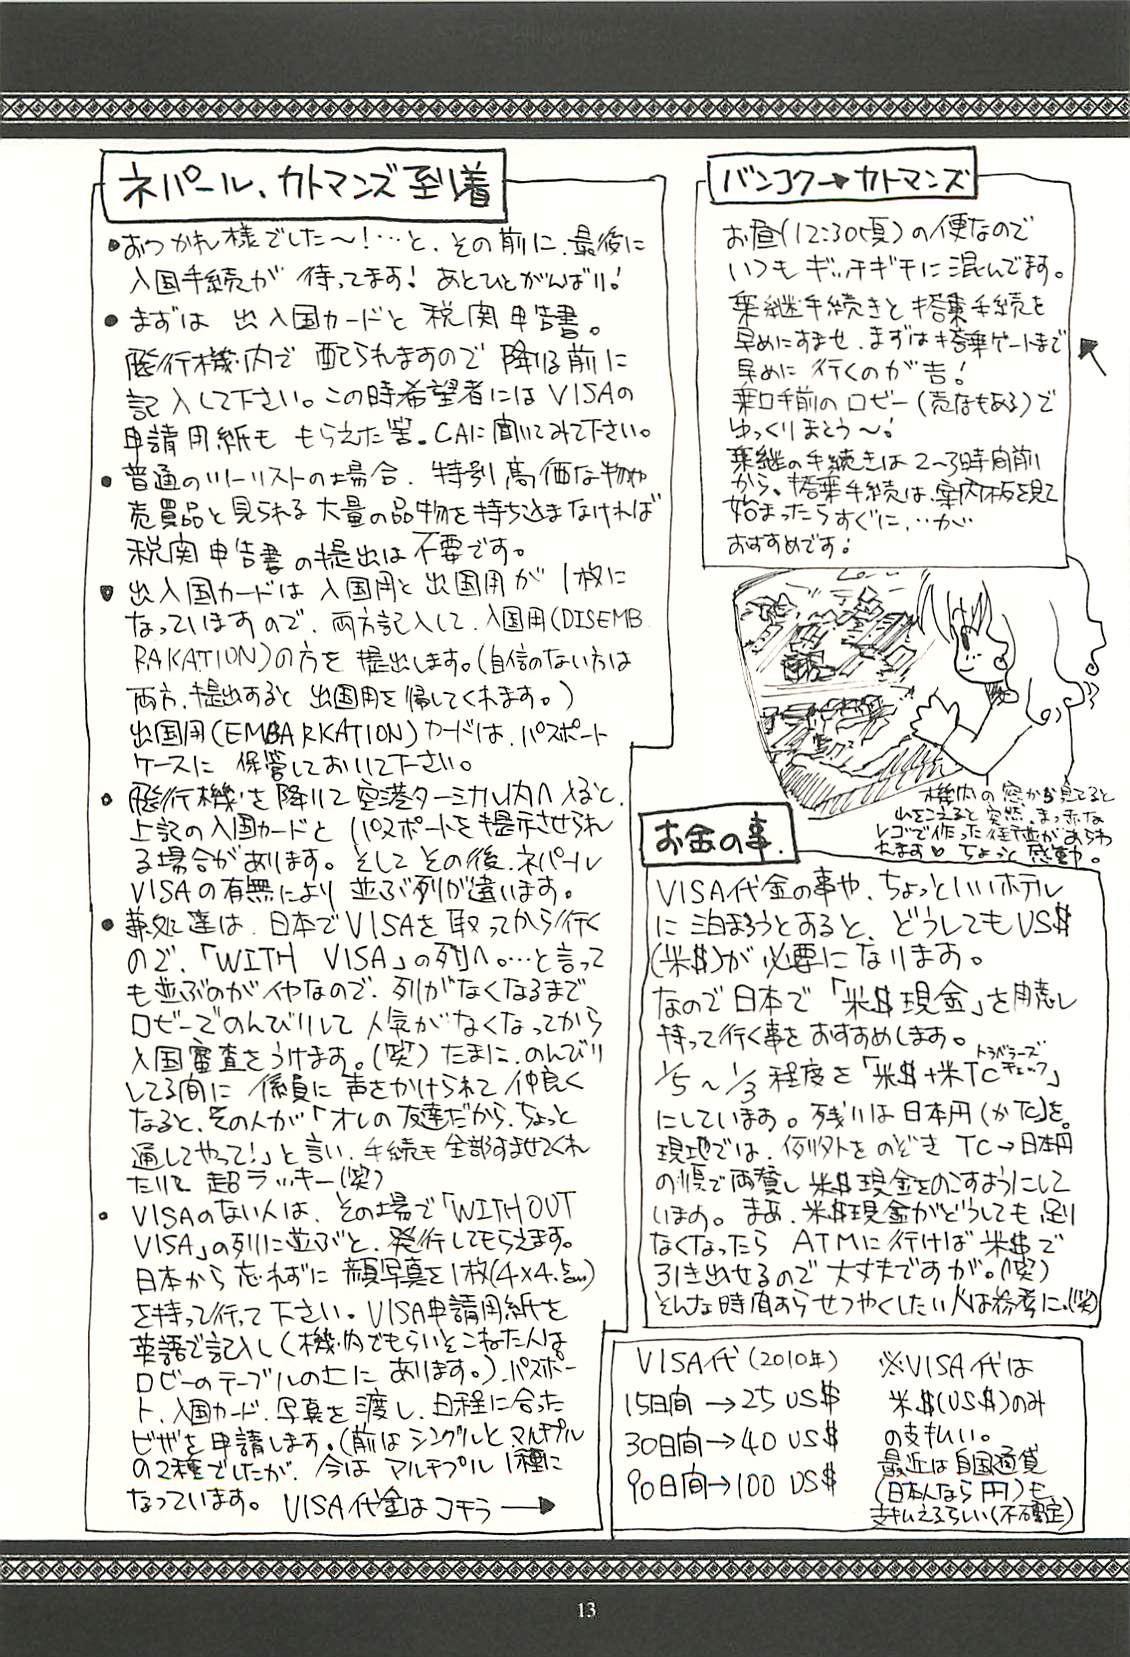 バンコク→カトマンズ
お昼(12:30頃)の便なので
いつもギッチギチに混んでます。
乗継手続きと搭乗手続を
早めにすませ、まずは搭乗ゲートまで
早めに行くのが吉!
乗口手前のロビー(売店もある)で
ゆっくりまとう〜!
乗継の手続きは2〜3時間前
から、搭乗手続は、案内板を見て
始まったらすぐに、‥が
おすすめです!
機内の窓から見てると
山をこえると突然、まっ赤な
レゴで作った街並があらわ
れます♡ ちょっと感動。
ネパール、カトマンズ到着
●おつかれ様でした〜!…と、その前に、最後に
入国手続が待ってます! あとひとがんばり!
●まずは 出入国カードと 税関申告書。
飛行機内で 配られますので 降りる前に
記入して下さい。この時希望者にはVISAの
申請用紙も もらえた筈。CAに聞いてみて下さい。
●普通のツーリストの場合、特別高価な物や
売買品と見られる大量の品物を持ち込まなければ
税関申告書の提出は不要です。
●出入国カードは入国用と出国用が1枚に
なっていますので、両方記入して、入国用(DISEMB
RAKATION)の方を提出します。(自信のない方は
両方、提出すると出国用を帰してくれます。)
出国用(EMBARKATION)カードは、パスポート
ケースに保管しておいて下さい。
●飛行機を降りて空港ターミナル内へ入ると、
上記の入国カードとパスポートを提示させられ
る場合があります。そしてその後、ネパール
VISAの有無により並ぶ列が違います。
●夢処達は、日本でVISAを取ってから行く
ので、「WITH VISA」の列へ。…と言って
も並ぶのがイヤなので、列がなくなるまで
ロビーでのんびりして人気がなくなってから
入国審査をうけます。(笑) たまに、のんびり
してる間に 係員に声をかけられて仲良く
なると、その人が「オレの友達だから、ちょっと
通してやって!」と言い、手続も全部すませてくれ
たりで 超ラッキー(笑)
●VISAのない人は、その場で「WITHOUT
VISA」の列に並ぶと、発行してもらえます。
日本から忘れずに顔写真を1枚(4×4.5cm)
を持って行って下さい。VISA申請用紙を
英語で記入し(機内でもらいそこねた人は
ロビーのテーブルの上にあります。)、パスポー
ト、入国カード、写真を渡し、日程に合った
ビザを申請します。(前はシングルとマルチプル
の2種でしたが、今はマルチプル1種に
なっています。 VISA代金はコチラ→
お金の事。
VISA代金の事や、ちょっといいホテル
に泊まろうとすると、どうしてもUS$
(米$)が必要になります。
なので日本で「米$現金」を用意し
持って行く事をおすすめします。
1/5〜1/3程度を「米$+米TC トラベラーズチェック」
にしています。残りは日本円(かTC)を。
現地では、例外をのぞきTC→日本円
の順で両替し米$現金をのこすようにして
います。まあ、米$現金がどうしても足り
なくなったら ATMに行けば米$で
引き出せるので大丈夫ですが。(笑)
そんな時間あらせつやくしたい人は参考に。(笑)
VISA代(2010年)
15日間→25 US$
30日間→40 US$
90日間→100 US$
※VISA代は
米$(US$)のみ
の支払い。
最近は自国通貨
(日本人なら円)も
支払えるらしい(不確定)
13